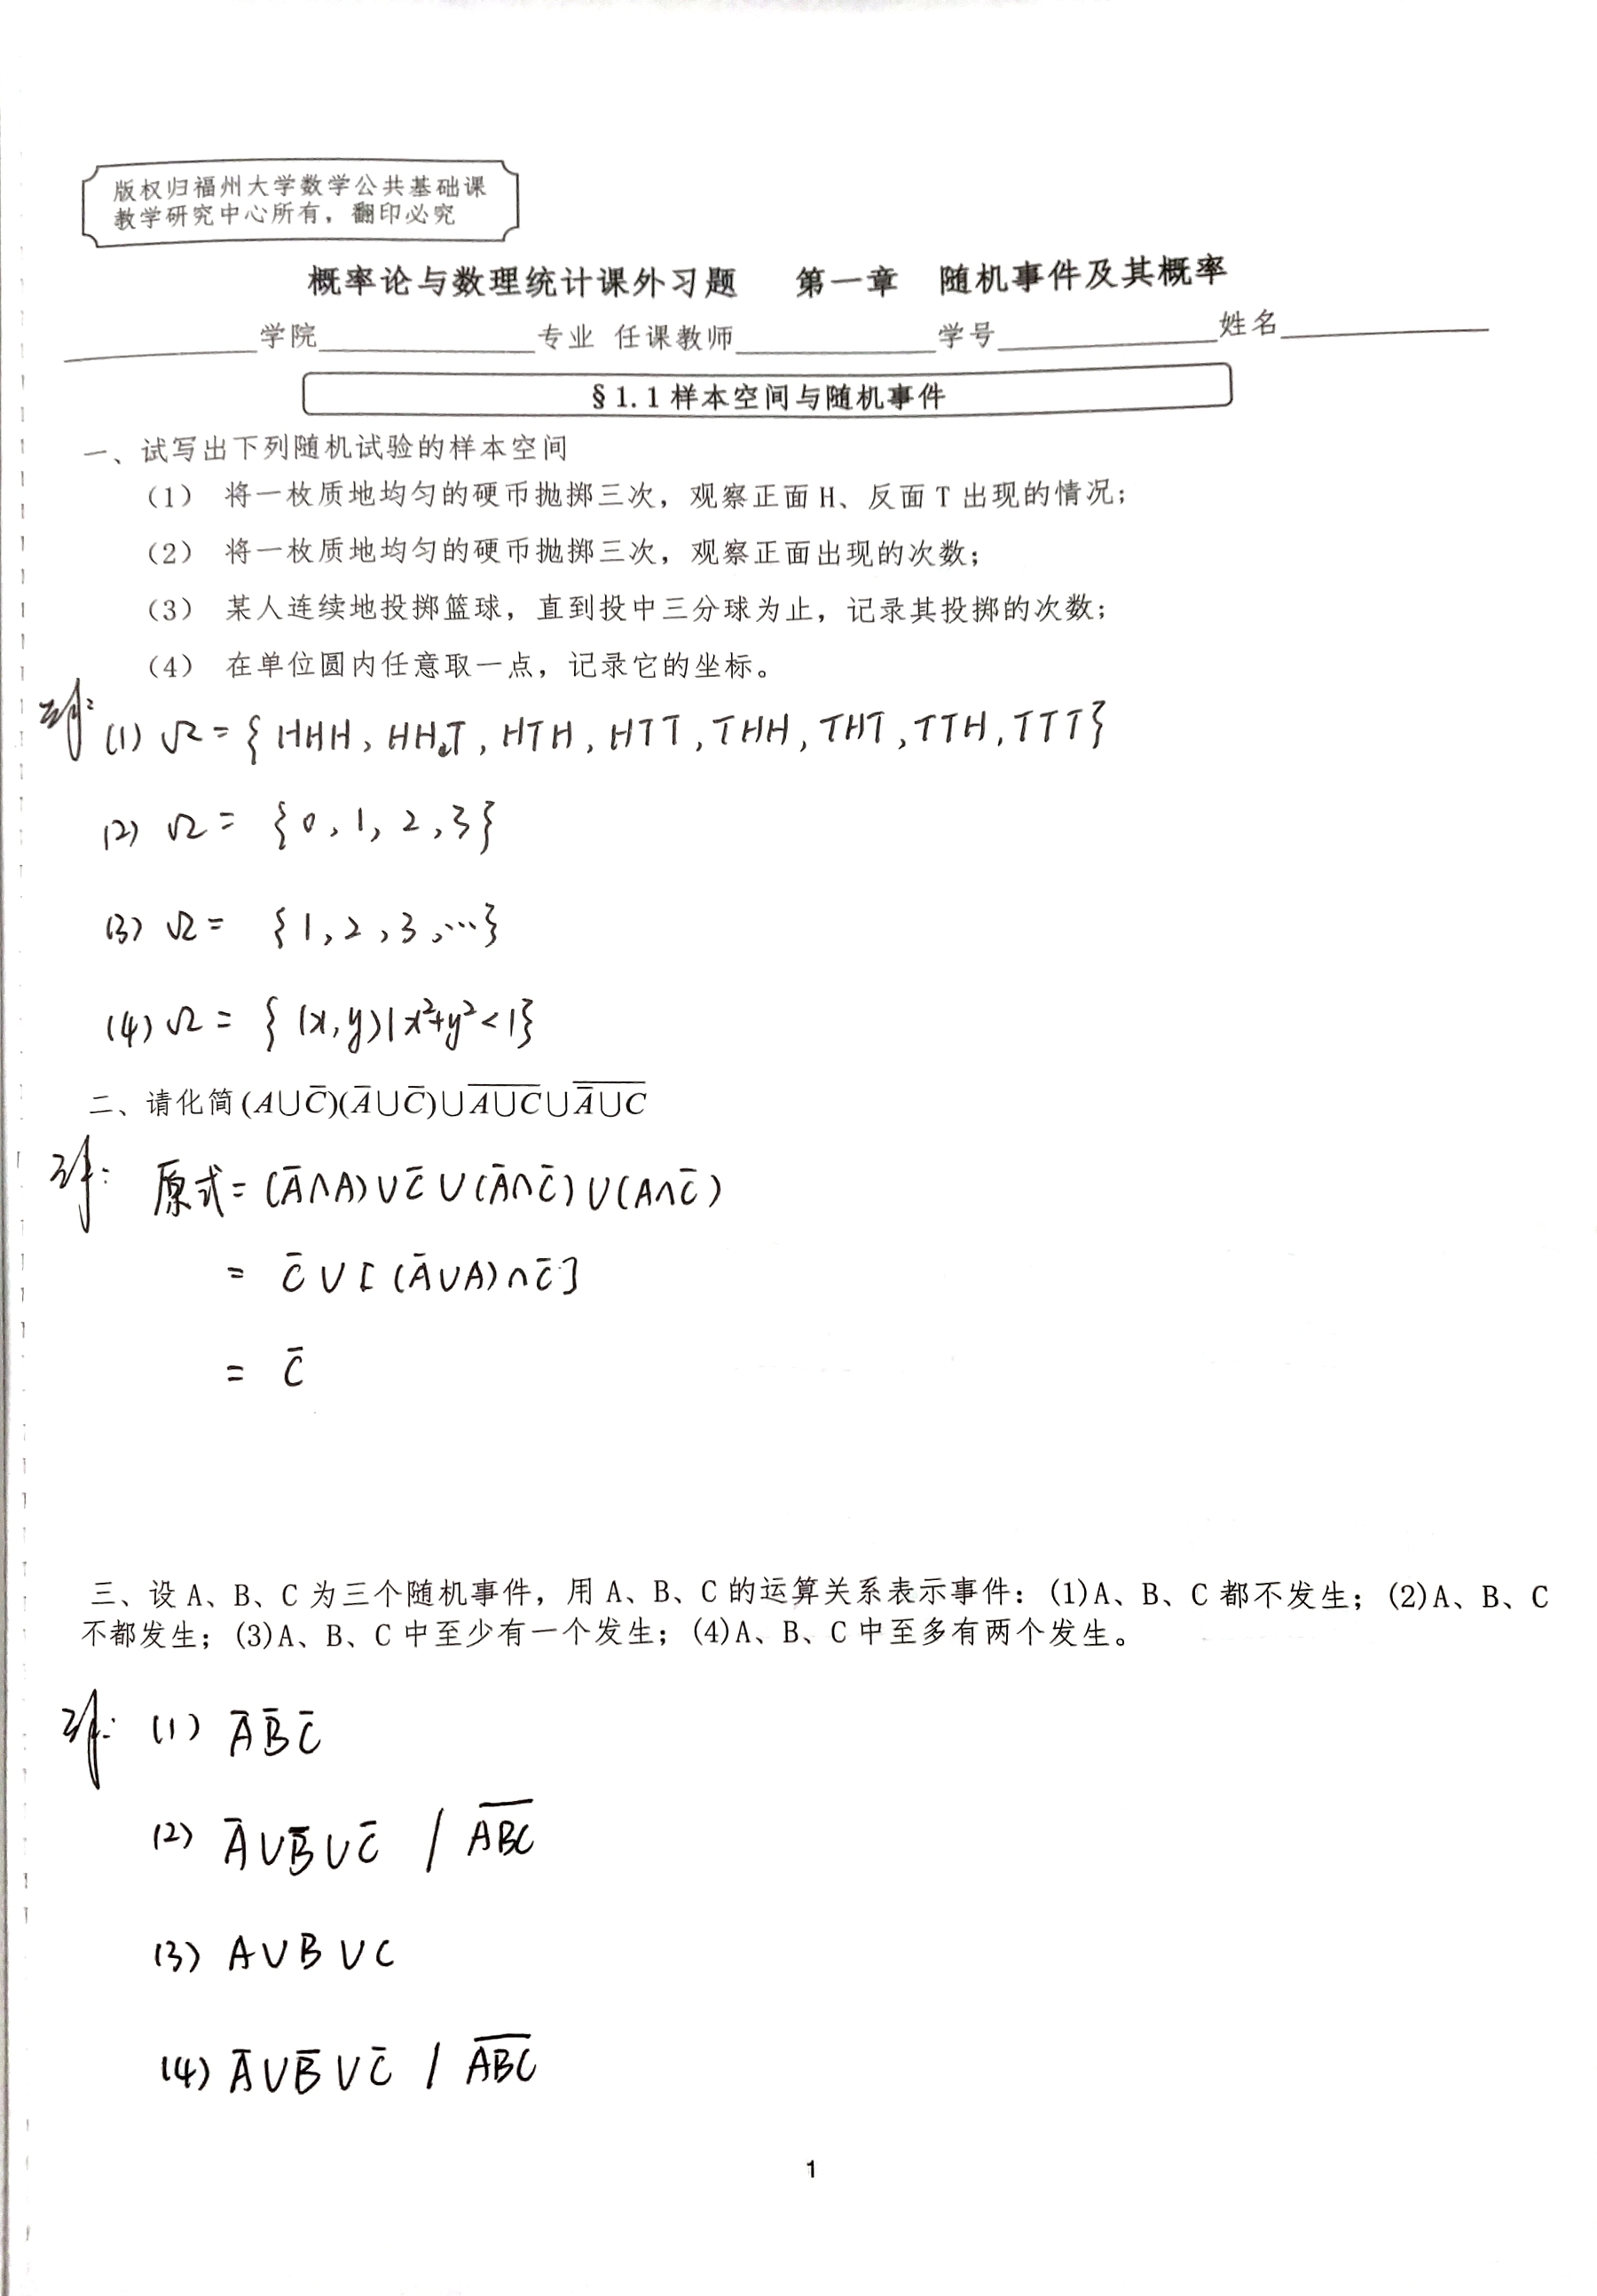 版权归福州大学数学公共基础课
教学研究中心所有，翻印必究
概率论与数理统计课外习题 第一章 随机事件及其概率
学院 专业 任课教师 学号 姓名
§1.1 样本空间与随机事件
一、试写出下列随机试验的样本空间
（1） 将一枚质地均匀的硬币抛掷三次，观察正面 H、反面 T 出现的情况；
（2） 将一枚质地均匀的硬币抛掷三次，观察正面出现的次数；
（3） 某人连续地投掷篮球，直到投中三分球为止，记录其投掷的次数；
（4） 在单位圆内任意取一点，记录它的坐标。
解：(1) Ω = {HHH, HHT, HTH, HTT, THH, THT, TTH, TTT}
(2) Ω = {0, 1, 2, 3}
(3) Ω = {1, 2, 3, …}
(4) Ω = {(x, y) | x²+y² < 1}
二、请化简 (A∪C̅)(A̅∪C̅)∪\overline{A∪C}∪\overline{A̅∪C}
解：原式 = (A̅∩A)∪C̅∪(A̅∩C̅)∪(A∩C̅)
= C̅∪[(A̅∪A)∩C̅]
= C̅
三、设 A、B、C 为三个随机事件，用 A、B、C 的运算关系表示事件：(1)A、B、C 都不发生；(2)A、B、C
不都发生；(3)A、B、C 中至少有一个发生；(4)A、B、C 中至多有两个发生。
解：(1) A̅B̅C̅
(2) A̅∪B̅∪C̅ / \overline{ABC}
(3) A∪B∪C
(4) A̅∪B̅∪C̅ / \overline{ABC}
1